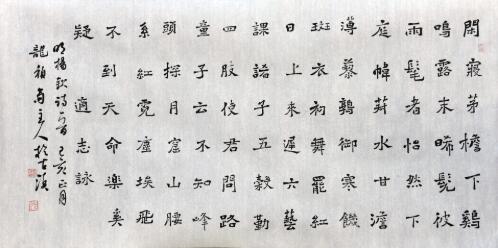 閑寢茅檐下鷄
鳴露未晞髧彼
兩髦者怡然下
庭幃菽水甘澹
薄藜鶉御寒饑
斑衣初舞罷紅
日上來遲六藝
課諸子五穀勤
四肢使君問路
童子云不知峰
頭探月窟山腰
系紅霓塵埃飛
不到天命樂奚
疑 適志詠
明楊 詩一首 己亥正月
龍 主人於古滇